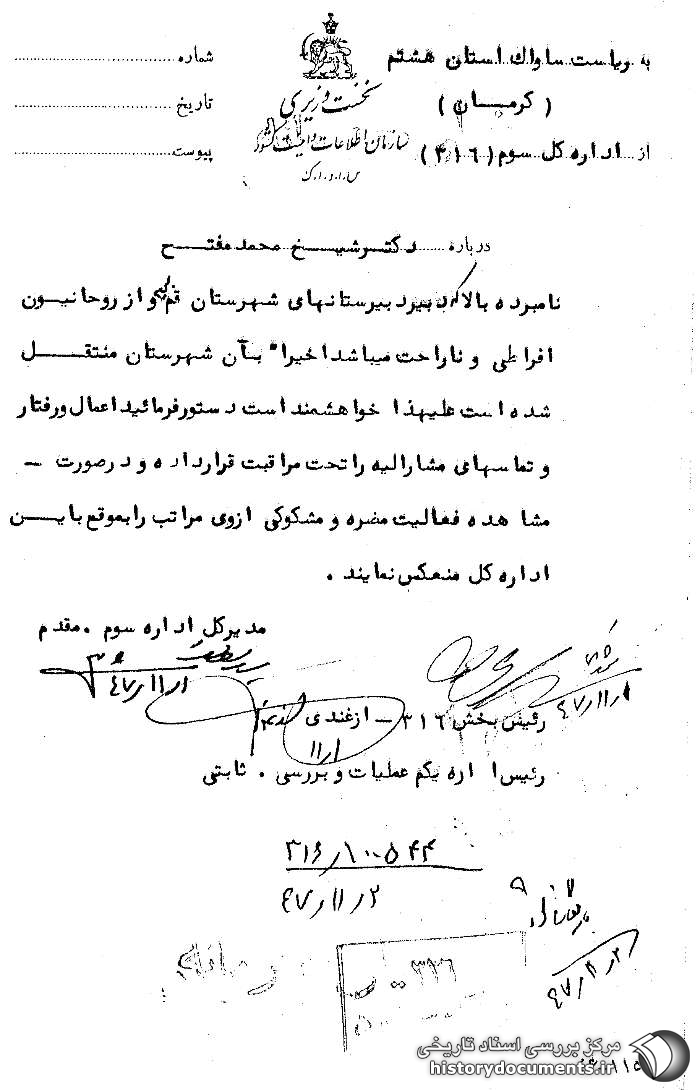 به ریاست ساواک استان هشتم
(کرمان)
از اداره کل سوم (۳۱۶)
نخست وزیری
سازمان اطلاعات و امنیت کشور
س.ا.و.ا.ک
شماره
تاریخ
پیوست
درباره دکتر شیخ محمد مفتح
نامبرده بالا که دبیر دبیرستانهای شهرستان قم و از روحانیون
افراطی و ناراحت میباشد اخیرا" بآن شهرستان منتقل
شده است علیهذا خواهشمند است دستور فرمائید اعمال و رفتار
و تماسهای مشارالیه را تحت مراقبت قرار داده و در صورت –
مشاهده فعالیت مضره و مشکوکی ازوی مراتب را بموقع باین
اداره کل منعکس نمایند .
مدیرکل اداره سوم . مقدم
۴۷٫۱۱٫۱
۴۷٫۱۱٫۱
رئیس بخش ۳۱۶ – ازغندی
۱۱٫۱
رئیس ا اره یکم عملیات و بررسی . ثابتی
۳۱۶٫۱۰۰۵۴۴
۴۷٫۱۱٫۲
۳۱۶
مرکز بررسی اسناد تاریخی
historydocuments.ir